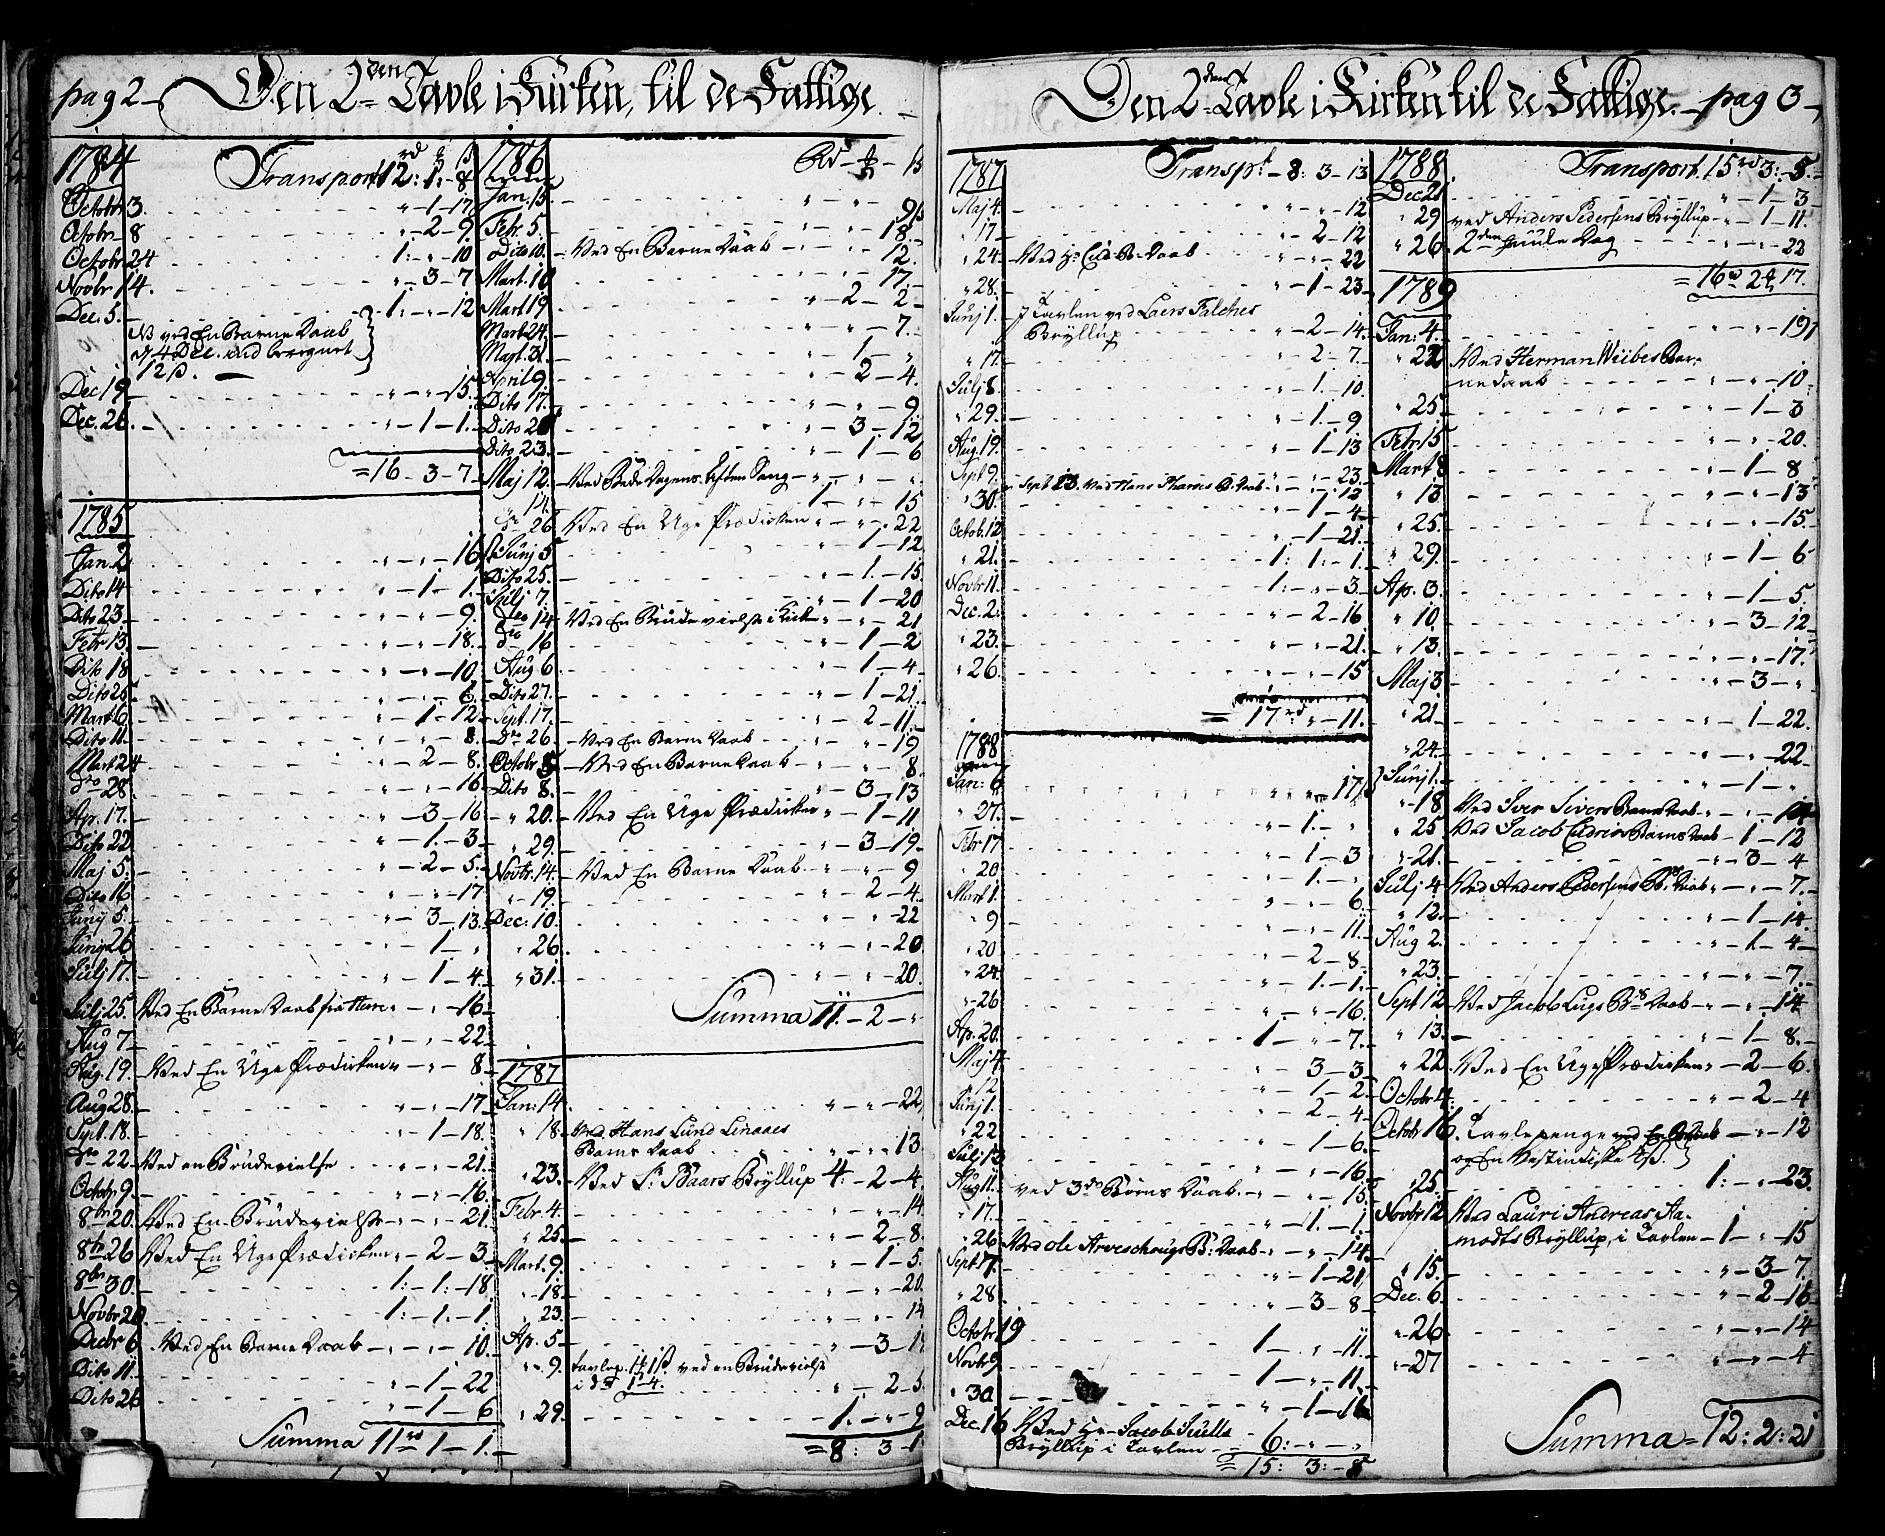 pag 2 Den 2den Tavle i Kirken, til de Fattige.
1784 rd ß
Transport 12: 1: 8
Octobr 3. „ - 1 - 17.
Octobr 8 „ - 2 - 9.
Octobr 24 1: „ - 10
Novbr 14. „ - 3 - 7
Dec. 5. 1: „ - 12
NB ved En Barne Daab
d 4 Dec. ind beregnet
12 ß.
Dec 19 „ - „ - 15.
Dec. 26. „ - 1 - 1.
= 16 - 3 - 7
1785
Jan. 2 „ - „ - 16
Dito 14 „ - 1 - 1.
Dito 23 „ - „ - 9.
Febr 13 „ - „ - 18.
Dito 18 „ - „ - 10.
Dito 25 „ - „ - 6.
Mart 6 „ - 1 - 12.
Dito 11. „ - „ - 8.
Mart 24 „ - 2 - 8.
Dto 28 „ - „ - 16
Ap. 17. „ - 3 - 16
Dito 22 „ - 1 - 3
Maj 5. „ - 2 - 5.
Dito 16 „ - „ - 17
Junij 5. „ - 3 - 13.
Junij 26 „ - 1 - „
Julj 17. „ - 1 - 4.
Julj 25. Ved En Barne Daab „ - „ - 16
Aug 7 „ - „ - 22.
Aug. 19. Ved En Uge Prædicken „ - „ - 8
Aug 28. „ - „ - 17
Sept. 18. „ - 1 - 18.
Dto 22. Ved en Brudevielse „ - „ - 21.
Octobr 9. „ - „ - 16.
8br 20. Ved En Brudevielse „ - „ - 21.
8br 26 Ved En Uge Prædicken „ - 2 - 3.
8br 30. 1: 1: - 18.
Novbr 20 1: - 1. - 1
Decbr 6 Ved En Barne Daab „ - „ - 10.
Dito 11. „ - 1 - 22
Dito 26 „ - 1 - 6
Summa 11rd 1 - 1.
1786 Rd - - ß
Jan. 15. „ - „ - 9 ß
Febr. 5. „ - „ - 18.
Dito 10. Ved En Barne Daab „ - „ - 12.
Mart. 10 „ - „ - 17.
Mart 19 „ - 2 - 2
Mart 24. „ - „ - 7.
Mart. 31. „ - 1 - „
April 9. „ - 2 - 4.
Dito 17. „ - „ - 9
Dito 20 „ - 3 - 12
Dito 23. „ - 1 - 6
Maj 12. Ved Bede Dagens Aften Sang „ - „ - „
„ 14. 1 - „ - 15
Dto 26 Ved En Uge Prædicken „ - „ - 22
Junj 5 „ - 1 - 12
Dito 25. „ - 1 - 15
Julj 7. „ - 1 - 20
Dto 14 Ved En Brudevielse i Kirk „ - „ - 21
Dto 16 „ - 1 - 2
Aug 6 „ - 1 - 4
Dito 27. „ - 1 - 21.
Sept. 17. „ - 2 - 11.
Dto 26. Ved En Barne Daab „ - „ - 19
Octobr 5 Ved En Barne Daab „ - „ - 8.
Dito 8. „ - 3 - 13
„ 20. Ved En Uge Prædicken „ - 1 - 11
„ 29. „ - 3 - 19.
Novbr. 14. Ved En Barne Daab „ - „ - 9
„ 19. „ - 2 - 4.
Dec: 10. „ - „ - 22
„ 26. „ - „ - 20
„ 31. „ - „ - 20.
Summa 11. - 2 - „
1787
Jan: 14. „ - „ - 22
„ 18. Ved Hans Lund Linaaes
Barns Daab „ - „ - 13
„ 23. Ved S: Baars Bryllup 4: - 2 - 4
Febr. 4. „ - „ - 14
„ 25. „ - 2 - 8.
Mart. 9. „ - 1 - 5.
„ 18. „ - „ - 20.
„ 23. „ - „ - 14
Ap. 5 „ - 3 - 1
„ 9. tavlep. 1 ß ved en Brudevielse
i 1 - 4. „ - 2 - 5
„ 29. 1. - „ - 9
= 8: 3 - 1
Den 2den Tavle i Kirken til de Fattige. pag 3
1787 Transpt. 8: 3 - 13
Maj 4. „ - „ - 12
„ 17. „ - 2 - 12
„ 24. Ved Hr B. Daab „ - „ - 22
„ 28. „ - 1 - 23
Junj 1. I Tavlen ved Laers Falches
Bryllup „ - 2 - 14.
„ 17. „ - 2 - 7.
Julj 8. „ - 1 - 10.
„ 29. „ - 1 - 9
Aug. 19. „ - 1 - 13
Sept 9. „ - „ - 23.
Sept 23. ved Hans B. Daab „ - „ - 12
„ 30. „ - 1 - 4
Octob. 12 „ - 1 - 21.
„ 21. 1: 1: - 1.
Novbr 11. 1: - „ - 3.
Dec. 2. „ - 2 - 16
„ 23. „ - „ - 21.
„ 26. „ - „ - 15
= 17rd „ - 11.
1788
Jan: 6 „ - „ - 17
„ 27. „ - 1. - „
Febr 17 „ - 1 - 3
„ 20 „ - 1. - „
Mart 1. „ - „ - 6.
„ 9 „ - „ - 11.
„ 20 „ - 2 - 8.
„ 24. „ - 1. - 1.
„ 26 „ - „ - 16.
Ap. 20. 1 - „ - 7.
Maj 4 „ 3 - 3
„ 12 „ - 1 - 2.
Junj 1. „ - 2 - 4
„ 22 „ - 1 - 6.
Julj 13 „ - „ - 16.
Aug 11. ved 3de Børns Daab „ - „ - 15
„ 17. „ - 1. - 1
„ 26 Ved Ole Arveschougs B: Daab „ - „ - 14.
Sept 7. „ - 1 - 21
„ 28 „ - 3 - 8
Octobr. 19 1 - „ - 11.
Novbr 9 „ - 1 - 11.
„ 30 „ - 1 - 16
Dec. 16 Ved Hr Jacob Juells
Bryllup i Tavlen 6: - „ - „
= 15: 3: - 5
1788. Transport. 15rd 3: - 5.
Dec 21 „ - 1 - 3
„ 29 ved Anders Pedersens Bryllup „ - 1 - 11.
„ 26 2den Juule Dag „ - „ - 22
= 16rd 2 17.
1789
Jan: 4. „ - „ - 19
„ 22 Ved Herman Wiibes Bar-
nedaab „ - „ - 10.
„ 25. „ - 1 - 3
Febr. 15 „ - „ - 20.
Mart 8 „ - 1 - 8
„ 13 „ - „ - 13
„ 25. „ - „ - 15.
„ 29. „ - 1 - 6
Ap. 3. „ - 1 - 5.
„ 10. „ - 3 - 12
„ 13. „ - „ - 17.
Maj 3 „ - 3 - „
„ 21 „ - 1 - 22.
„ 24. „ - „ - 22
Junj 1. „ - 1 - „
„ 18. Ved Iver Sivers Barns Daab „ - „ - 14
„ 25 Ved Jacob Barns Daab - 1 - 12
„ 21. „ - 3 - 4
Julj 4 Ved Anders Pedersens Bs Daab „ - „ - 7.
„ 12. „ - 1 - 14
Aug 2. „ - 1 - 4
„ 23. „ - „ - 7
Sept 12 Ved Jacob Lugs Bs Daab „ - „ - 14
„ 13. „ - 1 - 8.
„ 22. Ved En Uge Prædicken „ - 2 - 6.
Octobr 4. „ - 2 - 4
Octobr 16. Tavlepenge ved En B. Daab „ - 12
og En Vestindiske ß.
„ 25. 1: - „ - 23.
Novbr 12 Ved Lauri Andreas Aa-
modts Bryllup, i Tavlen 1 - „ - 15
„ 15. „ - 3 - 7.
Dec. 6. „ - 2 - 16
„ 26. „ - „ - 14
„ 27 „ - „ - 4
Summa = 12: 2: 21